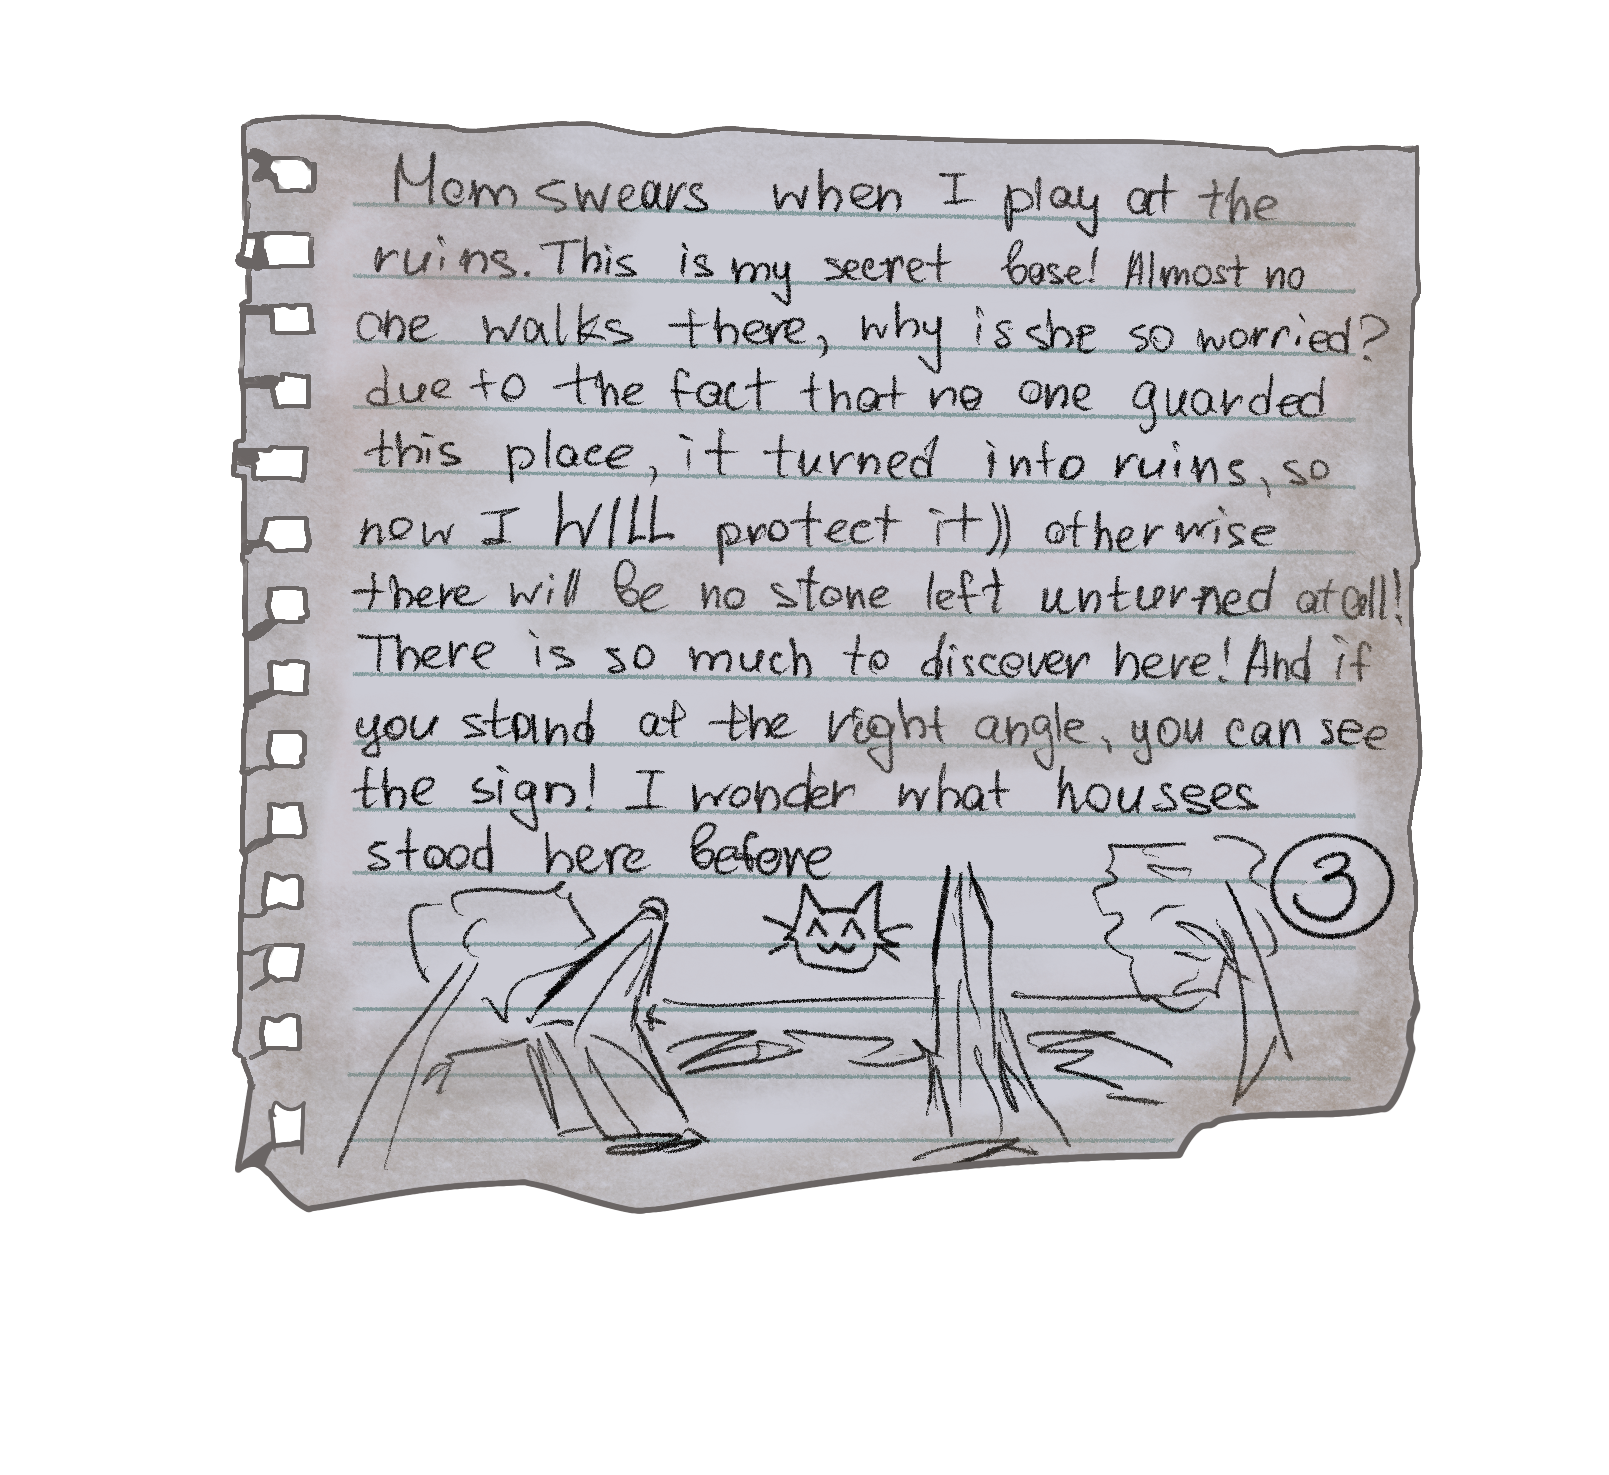 Mom swears when I play at the
ruins. This is my secret base! Almost no
one walks there, why is she so worried?
due to the fact that no one guarded
this place, it turned into ruins, so
now I WILL protect it)) otherwise
there will be no stone left unturned at all!
There is so much to discover here! And if
you stand at the right angle, you can see
the sign! I wonder what housses
stood here before
3